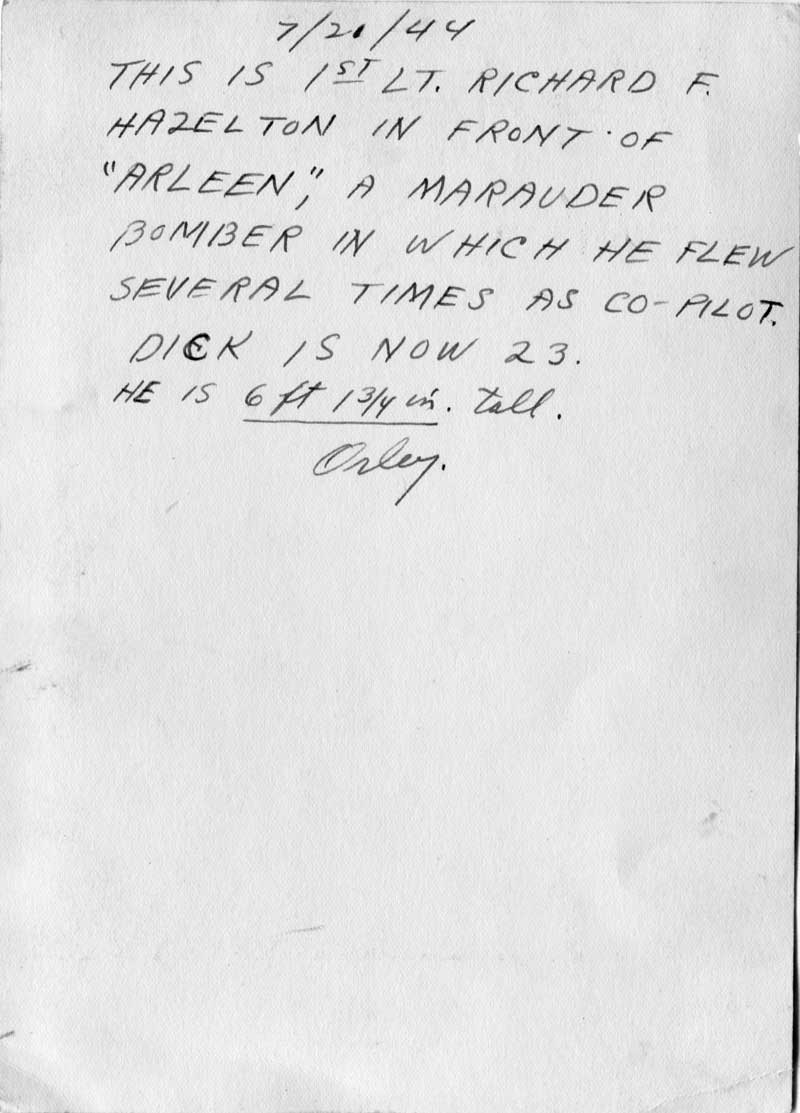 7/21/44
THIS IS 1ST LT. RICHARD F.
HAZELTON IN FRONT OF
"ARLEEN," A MARAUDER
BOMBER IN WHICH HE FLEW
SEVERAL TIMES AS CO-PILOT.
DICK IS NOW 23.
HE IS 6 ft 1 3/4 in. tall.
Orley.